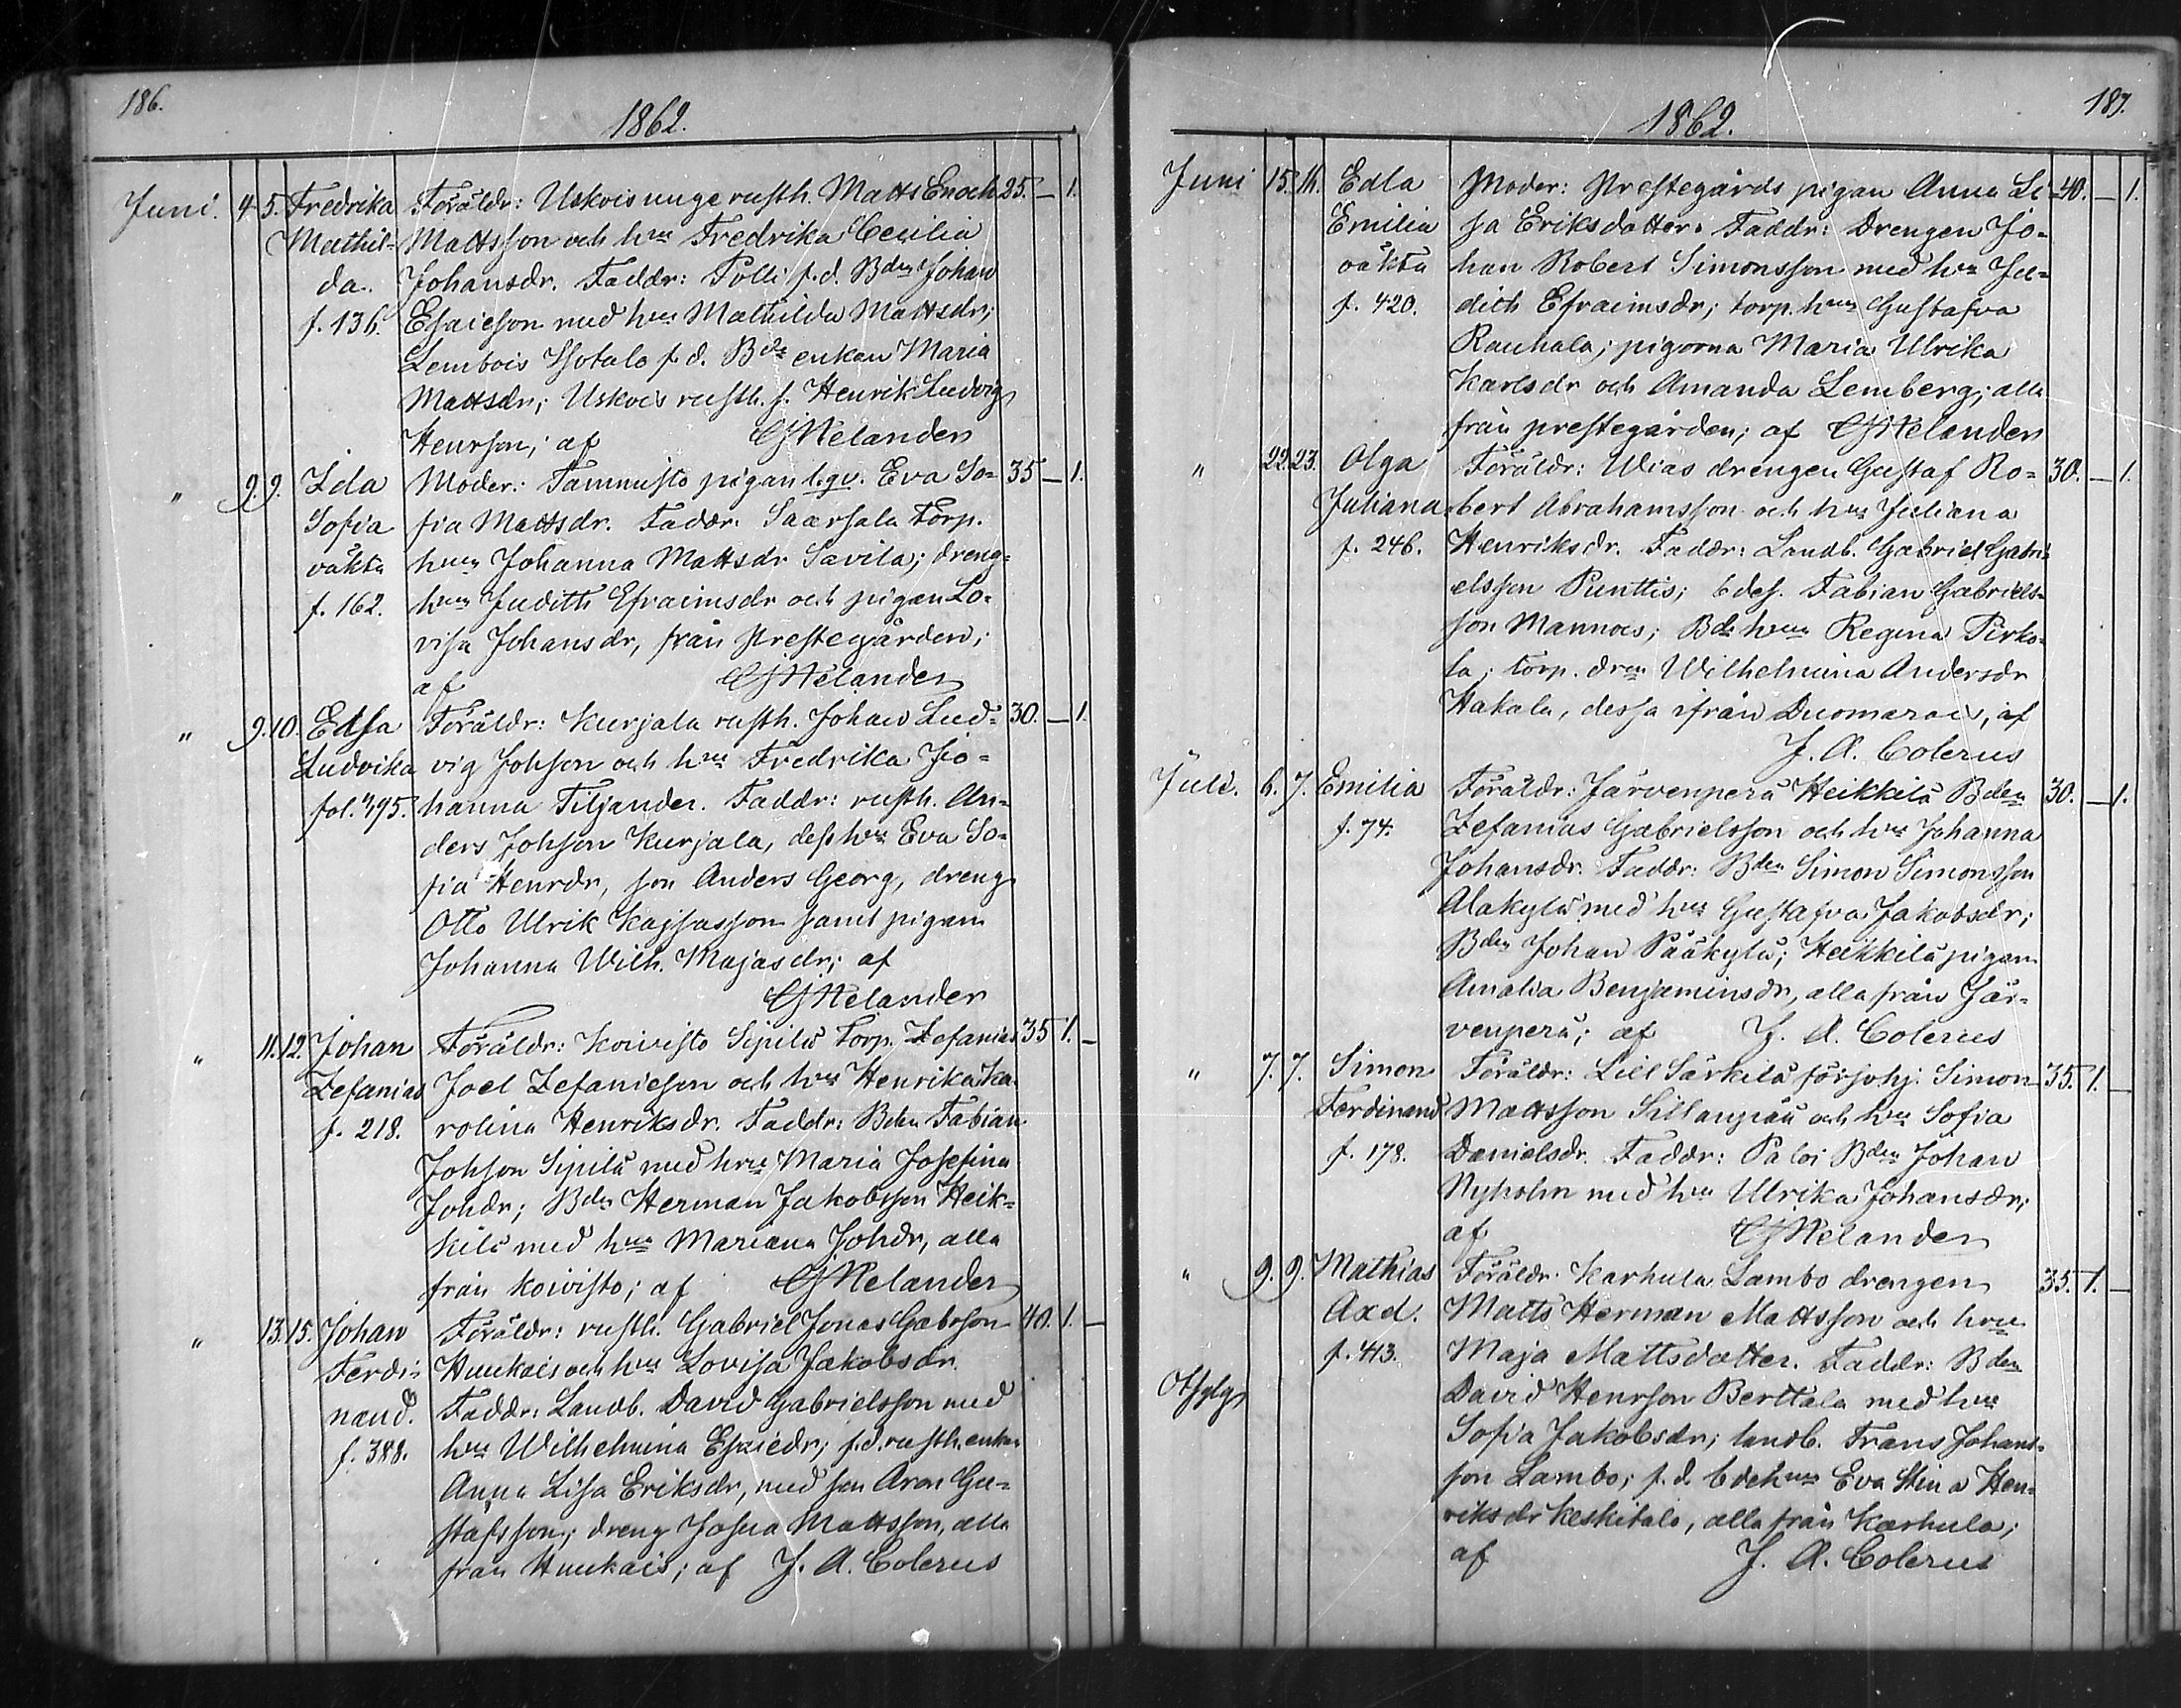 186.
1862.
Juni. 4. 5. Fredrika Föräldr: Uskois unge rusth. Matts Enoch 25. — 1.
Mathil- Mattsson och hu Fredrika Cecilia
da. Johansdr. Faddr: Polli f.d. Bden Johan
f. 136. Esaieson med hu Mathilda Mattsdr;
Lembois Isotalo f. d. Bde enkan Maria
Mattsdr; Uskois rusth. s. Henrik Ludvig
Henrson; af CGHelander
" 9. 9. Ida Moder: Tammisto pigan l.qv. Eva So- 35 — 1.
Sofia fia Mattsdr. Faddr. Saarsala Torp.
oäkta hun Johanna Mattsdr Savila; dreng-
f. 162. hun Judith Efraimsdr och pigan Lo-
visa Johansdr, från Prestegården;
af CGHelander
" 9. 10. Edla Föräldr: Kurjala rusth. Johan Lud- 30. — 1.
Ludvika vig Johsson och hu Fredrika Jo-
fol. 395. hanna Tiljander. Faddr: rusth. An-
ders Johsson Kurjala, dess hu Eva So-
fia Henrdr, son Anders Georg, dreng
Otto Ulrik Kajsasson samt pigan
Johanna Wilh. Majasdr; af
CGHelander
" 11. 12. Johan Föräldr: Koivisto Sipilä Torp. Zefanias 35 1. —
Zefanias Joel Zefanieson och hu Henrika Ka-
f. 218. rolina Henriksdr. Faddr: Bden Fabian
Johsson Sipilä med hu Maria Josefina
Johdr; Bden Herman Jakobsson Heik-
kilä med hu Mariana Johdr, alla
från Koivisto; af CGHelander
" 13. 15. Johan Föräldr: rusth. Gabriel Jonas Gabrsson 40. 1. —
Ferdi- Huukais och hu Lovisa Jakobsdr.
nand. Faddr: Landb. David Gabrielsson med
f. 388. hu Wilhelmina Esaiedr; f.d. rusth. enkan
Anna Lisa Eriksdr, med son Aron Gu-
stafsson; dreng Josua Mattsson, alla
från Huukais; af J. A. Colerus
187.
1862.
Juni 15. 16. Edla Moder: Prestegårds pigan Anna Li- 40. — 1.
Emilia sa Eriksdotter. Faddr: Drengen Jo-
oäkta han Robert Simonsson med hu Ju-
f. 420. dith Efraimsdr; torp. hun Gustafva
Rauhala; pigorna Maria Ulrika
Karlsdr och Amanda Lemberg; alla
från prestegården; af CGHelander
" 22. 23. Olga Föräldr: Uias drengen Gustaf Ro- 30. — 1.
Juliana bert Abrahamsson och hu Juliana
f. 246. Henriksdr. Faddr: Landb. Gabriel Gabri-
elsson Punttis; bdes. Fabian Gabriels-
son Mannois; Bde hun Regina Pirko-
la; torp. Wilhelmina Andersdr
Hakala, dessa ifrån Duomarois; af
J. A. Colerus
Juli. 6. 7. Emilia Föräldr: Järvenperä Heikkilä Bden 30. — 1.
f. 74. Zefanias Gabrielsson och hu Johanna
Johansdr. Faddr: Bden Simon Simonsson
Alakylä med hu Gustafva Jakobsdr;
Bden Johan Pääkylä; Heikkilä pigan
Amalia Benjaminsdr, alla från Jär-
venperä; af J. A. Colerus
" 7. 7. Simon Föräldr: Lill Särkilä Simon 35. 1. —
Ferdinand Mattsson Sillanpää och hu Sofia
f. 178. Danielsdr. Faddr: Paloi Bden Johan
Nyholm med hu Ulrika Johansdr;
af CGHelander
" 9. 9. Mathias Föräldr: Karhula Lambo drengen 35. 1. —
Axel. Matts Herman Mattsson och hu
f. 413. Maja Mattsdotter. Faddr: Bden
David Henrson Berttala med hu
Sofia Jakobsdr; landb. Frans Johans-
son Lambo; f. d. bdehun Eva Stina Hen-
riksdr Keskitalo, alla från Karhula;
af J. A. Colerus